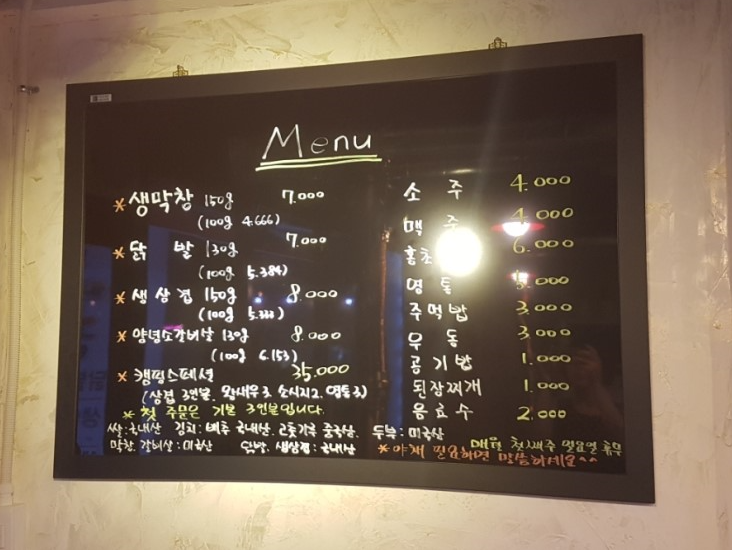 Menu
* 생막창 150g 7.000
(100g 4.666)
* 닭 발 130g 7.000
(100g 5.384)
* 생삼겹 150g 8.000
(100g 5.333)
* 양념소갈비살 130g 8.000
(100g 6.153)
* 캠핑스페셜 35.000
(삼겹 3인분, 왕새우3, 소시지2, 명통3)
* 첫 주문은 기본 3인분입니다.
소 주 4.000
맥 주 4.000
홍초 6.000
명 통 5.000
주먹밥 3.000
우 동 3.000
공기밥 1.000
된장찌개 1.000
음료수 2.000
쌀:국내산 김치:배추 국내산, 고춧가루 중국산, 두부:미국산
막창, 갈비살:미국산 닭발, 생삼겹:국내산
매월 첫째주 일요일 휴무
* 야채 필요하면 말씀하세요^^